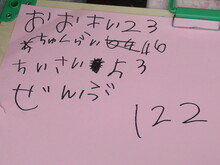 おおきい23
ちゅんぐらい46
ちいさい53
ぜんぶ
122